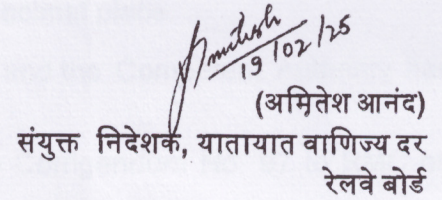 Amitesh
19/02/25
(अमितेश आनंद)
संयुक्त निदेशक, यातायात वाणिज्य दर
रेलवे बोर्ड